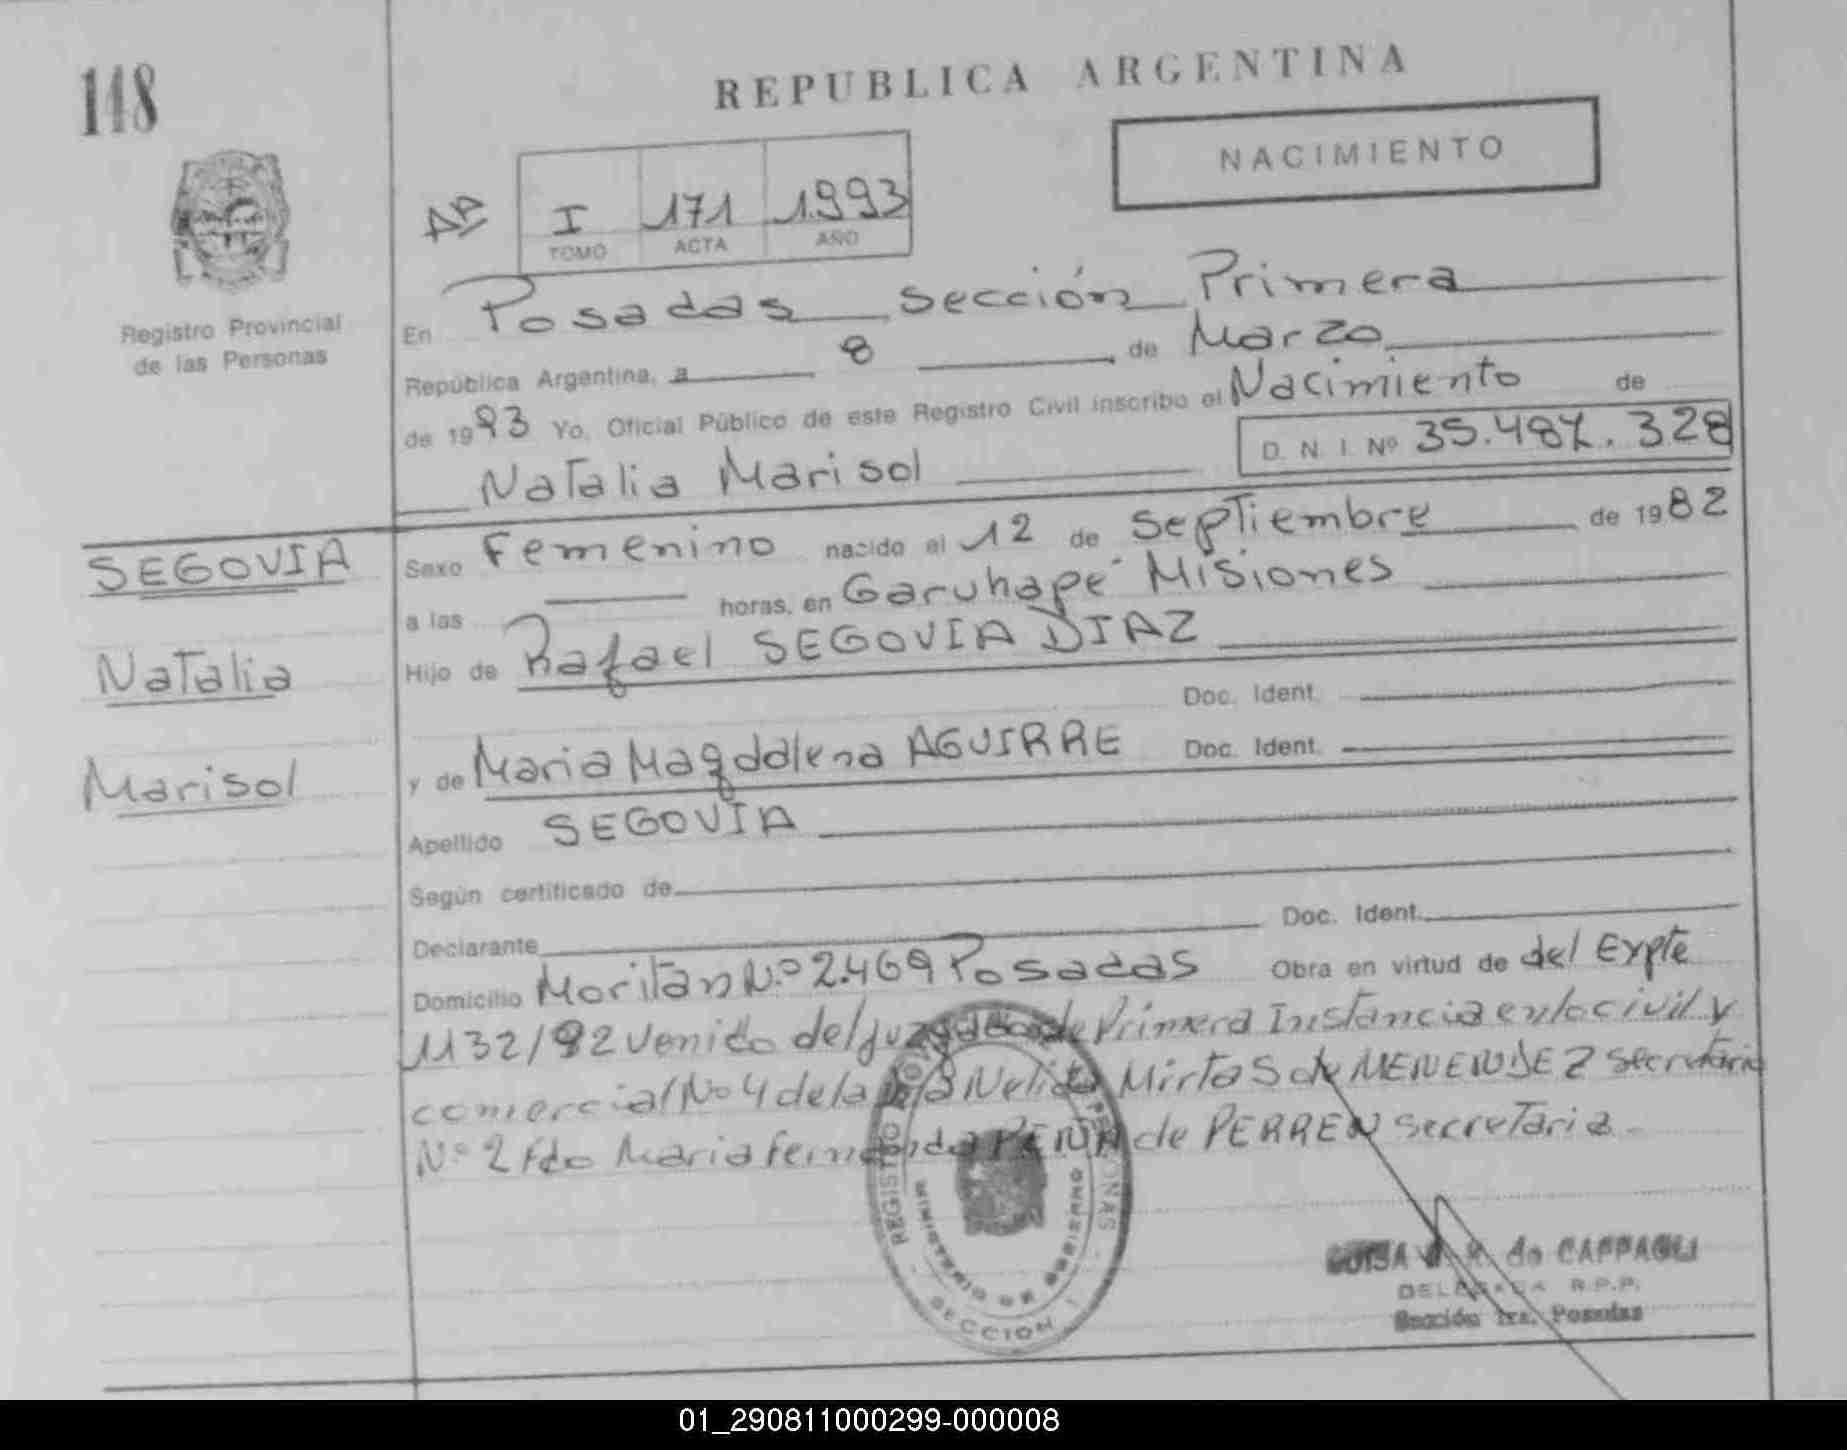 148
REPUBLICA ARGENTINA
NACIMIENTO
I 171 1.993
TOMO ACTA AÑO
Registro Provincial
de las Personas
En Posadas sección Primera
República Argentina, a 8 de Marzo
de 1993 Yo, Oficial Público de este Registro Civil inscribo el Nacimiento de
D. N. I. Nº 35.487.328
Natalia Marisol
SEGOVIA
Natalia
Marisol
Sexo Femenino nacido el 12 de Septiembre de 1982
a las horas, en Garuhapé Misiones
Hijo de Rafael SEGOVIA DIAZ
Doc. Ident.
y de Maria Magdalena AGUIRRE Doc. Ident.
Apellido SEGOVIA
Según certificado de
Declarante Doc. Ident.
Domicilio Moritán N.º 2.469 Posadas Obra en virtud de del Expte
1132/92 venido del Juzgado de Primera Instancia en lo civil y
comercial No 4 de la Nelida Mirta S de MENENDEZ secretaria
N.º 2 fdo Maria Fernanda PEÑA de PERREN secretaria
REGISTRO PERSONAS
MINISTERIO DE GOBIERNO
SECCION
LUISA de CAPPAGLI
DELEGADA R.P.P.
Sección 1ra. Posadas
01_290811000299-000008